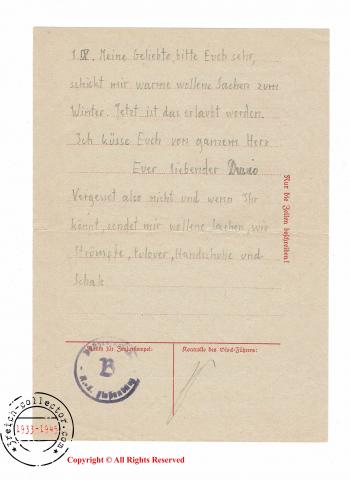 1. IX. Meine Geliebte, bitte Euch sehr,
schickt mir warme wollene Sachen zum
Winter. Jetzt ist das erlaubt worden.
Ich küsse Euch von ganzem Herz
Euer liebender
Vergesset also nicht und wenn Ihr
könnt, sendet mir wollene Sachen, wie
Strümpfe, Pulover, Handschuhe und
Schals
Nur die Zeilen beschreiben!
Raum für Zensurstempel:
Kontrolle des Block-Führers:
B
3reich-collector.com
1933-1945
Copyright © All Rights Reserved